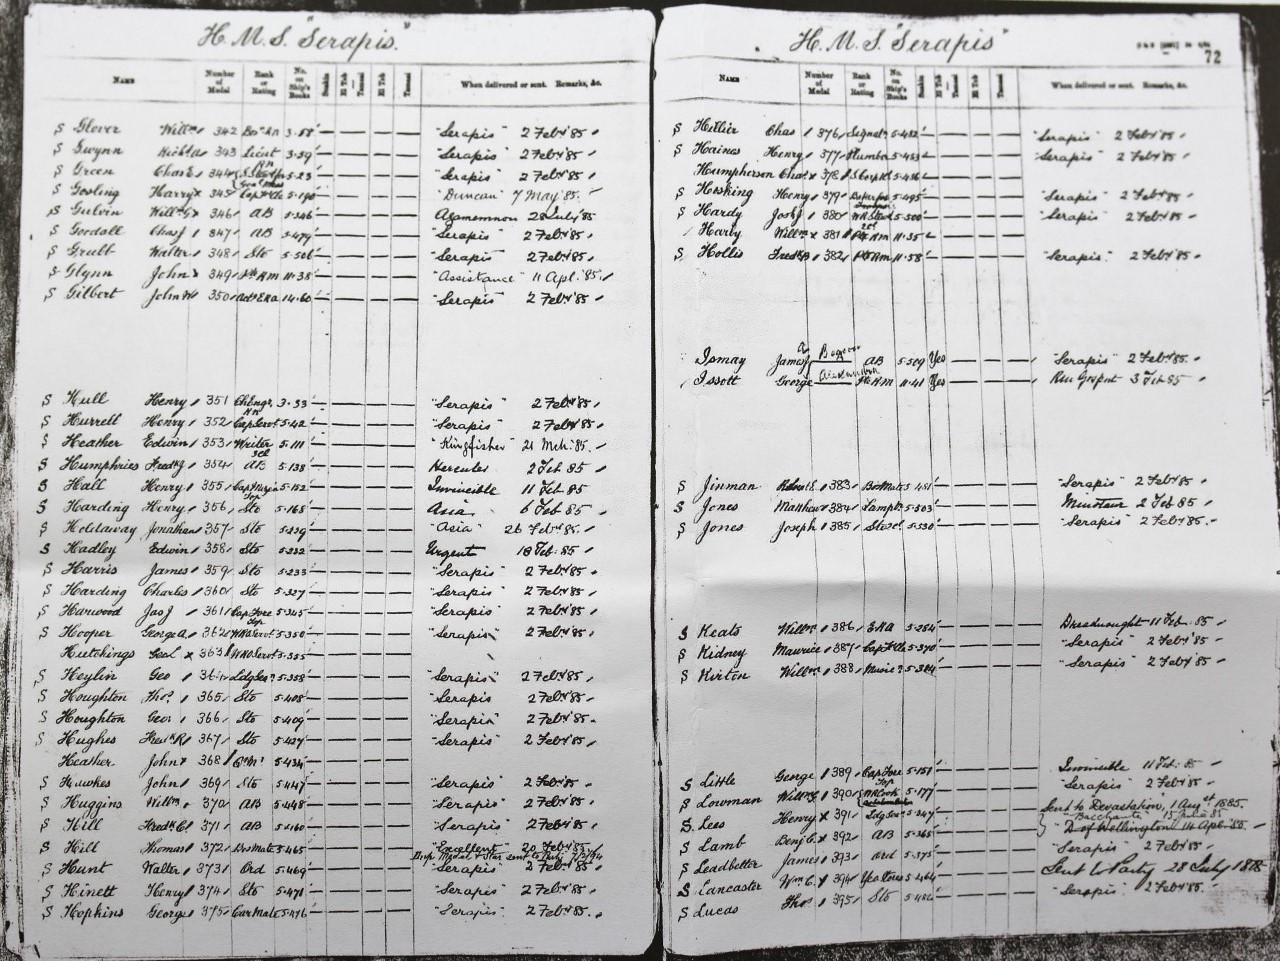 H. M. S. "Serapis."
Name Number of Medal Rank or Rating No. on Ship's Books Suakin El Teb Tamaai When delivered or sent. Remarks, &c.
S Glover Willm 342 3.58 "Serapis" 2 Feby '85
S Gwynn Richd 343 Lieut 3.59 "Serapis" 2 Feby '85
S Green Chas 344 5.23 "Serapis" 2 Feby '85
S Gosling Harry x 345 5.190 "Duncan" 7 May '85
S Gulvin Willm G x 346 AB 5.346 Agamemnon 28 July '85
S Goodall Chas J 347 AB 5.479 "Serapis" 2 Feby '85
S Grubb Walter 348 Sto 5.506 "Serapis" 2 Feby '85
S Glynn John 349 11.38 "Assistance" 11 Apl. '85
S Gilbert John W 350 ERA 14.60 "Serapis" 2 Feby '85
S Hull Henry 351 Ch Engr 3.33 "Serapis" 2 Feby '85
S Hurrell Henry 352 5.42 "Serapis" 2 Feby '85
S Heather Edwin 353 Writer 5.111 "Kingfisher" 21 Mch: '85
S Humphries Fredk J 354 AB 5.138 Hercules 2 Feb 85
S Hall Henry 355 5.152 Invincible 11 Feb 85
S Harding Henry 356 Sto 5.165 Asia 6 Feb 85
S Holdaway Jonathan 357 Sto 5.229 "Asia" 26 Feby '85
S Hadley Edwin 358 Sto 5.232 Urgent 18 Feb: 85
S Harris James 359 Sto 5.233 "Serapis" 2 Feby '85
S Harding Charles 360 Sto 5.327 "Serapis" 2 Feby '85
S Harwood Jas J 361 Cap Fore Top 5.345 "Serapis" 2 Feby '85
S Hooper George A. 362 5.350 "Serapis" 2 Feby '85
Hutchings Geo x 363 5.355
S Heylin Geo 364 5.358 "Serapis" 2 Feby '85
S Houghton Thos. 365 Sto 5.408 "Serapis" 2 Feby '85
S Houghton Geo 366 Sto 5.409 "Serapis" 2 Feby '85
S Hughes Fredk R 367 Sto 5.427 "Serapis" 2 Feby '85
Heather John 368 5.434
S Hawkes John 369 Sto 5.447 "Serapis" 2 Feby '85
S Huggins Willm 370 AB 5.448 "Serapis" 2 Feby '85
S Hill Fredk C 371 AB 5.460 "Serapis" 2 Feby '85
S Hill Thomas 372 5.465 "Excellent" 20 Feby '85
Medal & Star sent to Party
S Hunt Walter 373 Ord 5.469 "Serapis" 2 Feby '85
S Hinett Henry 374 Sto 5.471 "Serapis" 2 Feby '85
S Hopkins George 375 5.476 "Serapis" 2 Feby '85
H. M. S. "Serapis"
72
Name Number of Medal Rank or Rating No. on Ship's Books Suakin El Teb Tamaai When delivered or sent. Remarks, &c.
S Hellier Chas 376 5.482 "Serapis" 2 Feby '85
S Haines Henry 377 Plumber 5.483 "Serapis" 2 Feby '85
Humpherson Chas x 378 5.486
S Hosking Henry 379 5.495 "Serapis" 2 Feby '85
S Hardy Jos J 380 5.500 "Serapis" 2 Feby '85
Harby Willm x 381 11.35
S Hollis Fredk 382 11.58 "Serapis" 2 Feby '85
Ismay James AB 5.509 Yes "Serapis" 2 Feby '85
Issott George 11.41 Yes 3 Feb 85
S Jinman Robert 383 5.481 "Serapis" 2 Feby '85
S Jones Matthew 384 5.503 Minotaur 2 Feb 85
S Jones Joseph 385 5.530 "Serapis" 2 Feby '85
S Keats Willm 386 ERA 5.284 Dreadnought 11 Feb. 85
S Kidney Maurice 387 5.370 "Serapis" 2 Feby '85
S Kirton Willm 388 5.384 "Serapis" 2 Feby '85
S Little George 389 Cap Fore Top 5.151 Invincible 11 Feb. 85
S Lowman Willm 390 5.177 "Serapis" 2 Feby '85
S. Lees Henry x 391 5.247 Sent to Devastation, 1 Augst 1885.
"Bacchante" 15 June 85
S Lamb Benj C x 392 AB 5.365 D. of Wellington 14 Apl. 85
S Leadbetter James 393 Ord 5.375 "Serapis" 2 Feby '85
S Lancaster Wm C. 394 5.464 Sent to Party 28 July
S Lucas Thos 395 Sto 5.486 "Serapis" 2 Feby '85